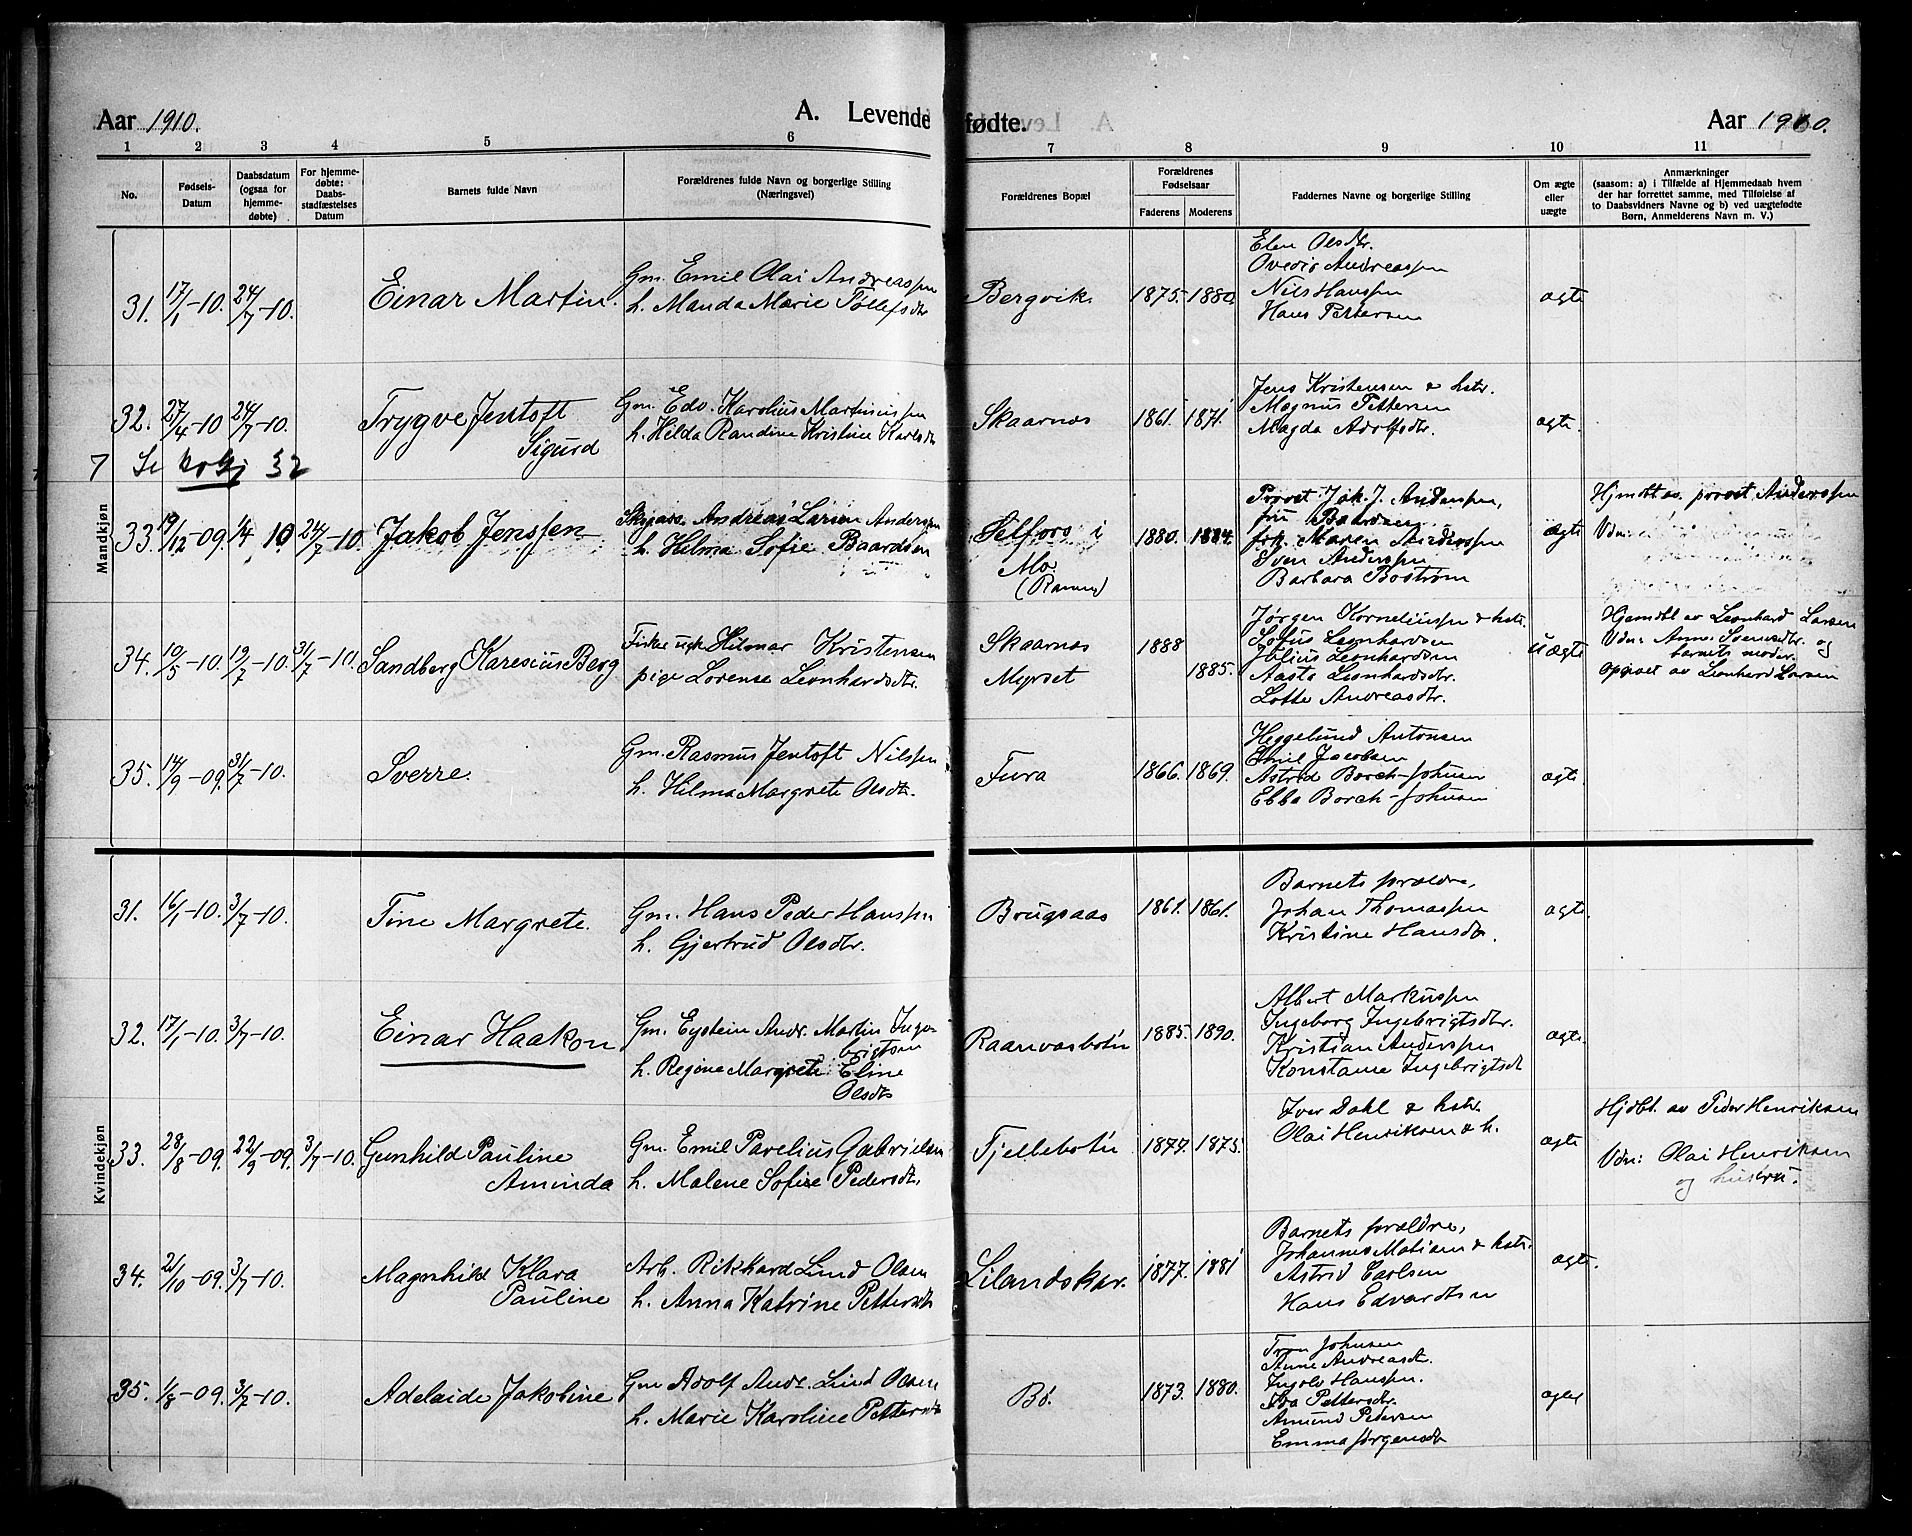 Aar 1910.
A. Levende fødte.
Aar 1910.
1 2 3 4 5 6 7 8 9 10 11
No.
Fødsels-
Datum
Daabsdatum
(ogsaa for
hjemme-
døbte)
For hjemme-
døbte:
Daabs-
stadfæstelses
Datum
Barnets fulde Navn
Forældrenes fulde Navn og borgerlige Stilling
(Næringsvei)
Forældrenes Bopæl
Forældrenes
Fødselsaar
Faderens Moderens
Faddernes Navne og borgerlige Stilling
Om ægte
eller
uægte
Anmærkninger
(saasom: a) i Tilfælde af Hjemmedaab hvem
der har forrettet samme, med Tilføielse af
to Daabsvidners Navne og b) ved uægtefødte
Børn, Anmelderens Navn m. V.)
Mandkjøn
31. 17/1-10. 24/7-10. Einar Martin.
Gm. Emil Olai Andreassen
h. Manda Marie Tollefsdtr
Bergvik 1875. 1880.
Elen Olsdtr.
Ovedie Andreassen
Nils Hanssen
Hans Pettersen
ægte
32. 27/4-10 24/7-10. Trygve Jentoft
Sigurd
Gm. Edv. Karolius Martinussen
h. Hilda Randine Kristine Karlsdtr
Skaarnes 1861. 1871.
Jens Kristensen & hstr.
Magnus Pettersen
Magda Adolfsdtr.
ægte.
7 Se 32
33. 19/12-09. 1/4 10 24/7-10. Jakob Jenssen
Andreas Larsen Anderssen
h. Hilma Sofie Baardsen
Selfors i
Mo
(Ranen)
1880. 1884.
Provst Jak. J. Anderssen,
fru Baardsen
frk. Maren Anderssen
Sven Anderssen
Barbara Bostrøm
ægte
Hjmdbt av provst Anderssen
Vdn:
34. 10/5-10. 19/7-10. 31/7-10. Sandberg Karesius Berg
Fisker Hilmar Kristensen
pige Lorense Leonhardsdtr.
Skaarnes
Myrset
1888
1885.
Jørgen Korneliussen & hstr.
Sofus Leonhardsen
Julius Leonhardsen
Aasta Leonhardsdtr.
Lotte Andreasdtr.
uægte
Hjemdbt av Leonhard Larsen
Vdn: Anne Svensdtr. og
barnets moder.
Opgivet av Leonhard Larsen
35. 14/9-09. 31/7-10. Sverre.
Gm. Rasmus Jentoft Nilssen
h. Hilma Margrete Olsdtr.
Fura 1866. 1869.
Heggelund Antonsen
Emil Jacobsen
Astrid Borch-Johnsen
Ebba Borch-Johnsen
ægte.
Kvindekjøn
31. 16/1-10. 3/7-10. Tine Margrete.
Gm. Hans Peder Hanssen
h. Gjertrud Olsdtr.
Brugsaas 1861. 1861.
Barnets forældre,
Johan Thomassen
Kristine Hansdtr.
ægte
32. 17/1-10. 3/7-10. Einar Haakon
Gm. Eystein Andr. Martin Inge-
brigtsen
h. Regine Margrete Eline
Olsdtr
Raanvasbotn 1885. 1890.
Albert Markussen
Ingeborg Ingebrigtsdtr.
Kristian Anderssen
Konstanse Ingebrigtsdt
ægte.
33. 28/8-09. 22/9-09. 3/7-10. Gunhild Pauline
Aminda
Gm. Emil Pavelius Gabrielsen
h. Malene Sofie Pedersdtr.
Fjellebotn 1877. 1875.
Iver Dahl & hstr.
Olai Henriksen & h.
ægte
Hjdbt. av Peder Henriksen
Vdn: Olai Henriksen
og hustru.
34. 21/10-09. 3/7-10. Magnhild Klara
Pauline
Arb. Rikhard Lind Olsen
h. Anna Katrine Pettersdtr
Lilandskar. 1877. 1881
Barnets forældre,
Johannes Matisen & hstr.
Astrid Carlsen
Hans Edvardsen
ægte.
35. 1/8-09. 3/7-10. Adelaide Jakobine
Gm Adolf Andr. Lind Olsen
h. Marie Karoline Pettersdtr
Bø. 1873. 1880.
Tron Johnsen
Anne Andreasdtr.
Ingolv Hanssen.
Pettersdtr.
Amund Pedersen
Emma Jørgensdtr
ægte